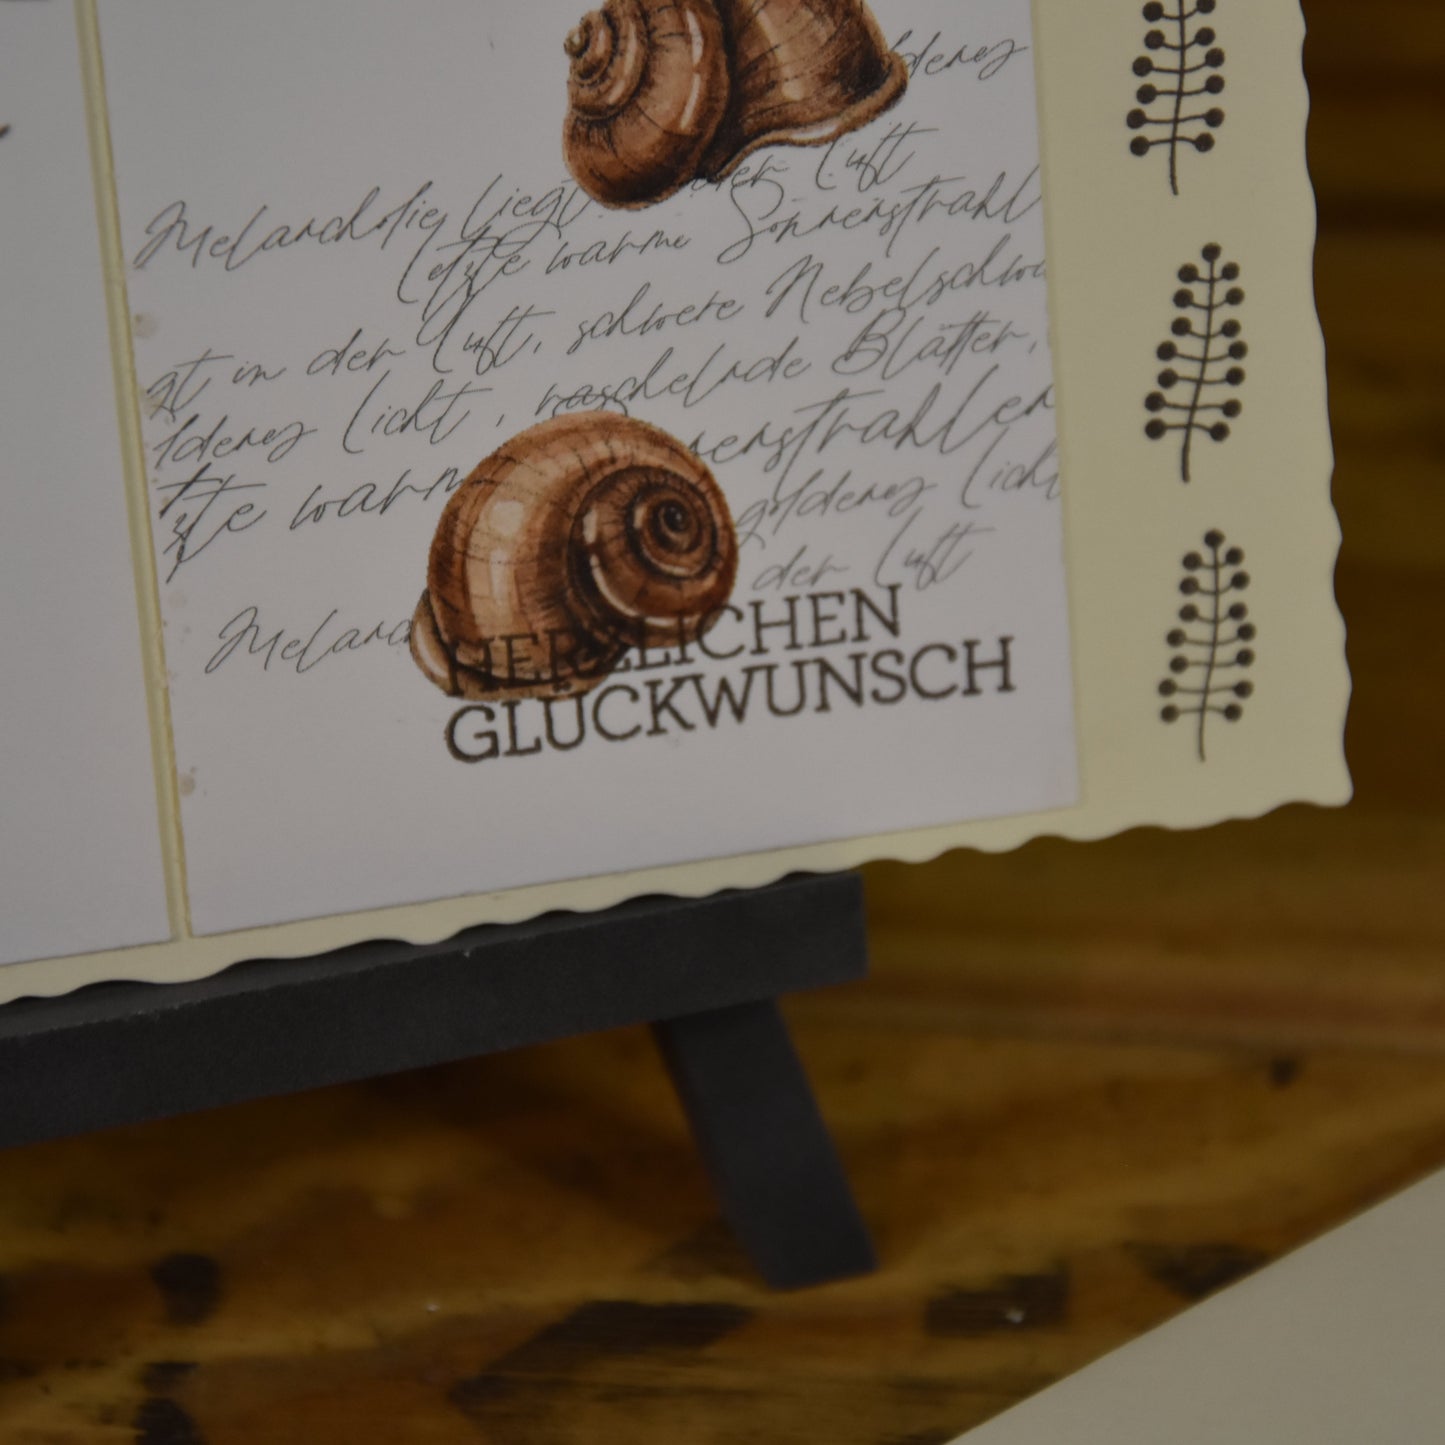 ldenes
Melancholie liegt der Luft
letzte warme Sonnenstrahl
gt in der Luft, schwere Nebelschwa
ldenes Licht, raschelnde Blätter,
zte warm nenstrahlen
goldenes Licht
Melanc der Luft
HERZLICHEN
GLÜCKWUNSCH